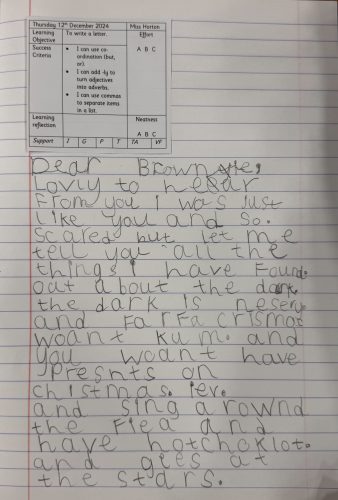 Thursday 12th December 2024 Miss Horton
Learning Objective To write a letter. Effort
Success Criteria • I can use co-ordination (but, or). A B C
• I can add -ly to turn adjectives into adverbs.
• I can use commas to separate items in a list.
Learning reflection Neatness
A B C
Support I G P T TA VF
Dear Brown
Lovly to hear
From you I was Just
Like you and so.
Scared but let me
tell you all the
things I have Found.
out about the dark
the dark is nesery
and FarFa crismat
woant kum. and
you woant have
Presnts on
christmas. iev.
and sing arownd
the Fiea and
have hotchoklot.
and gies at
the stars.